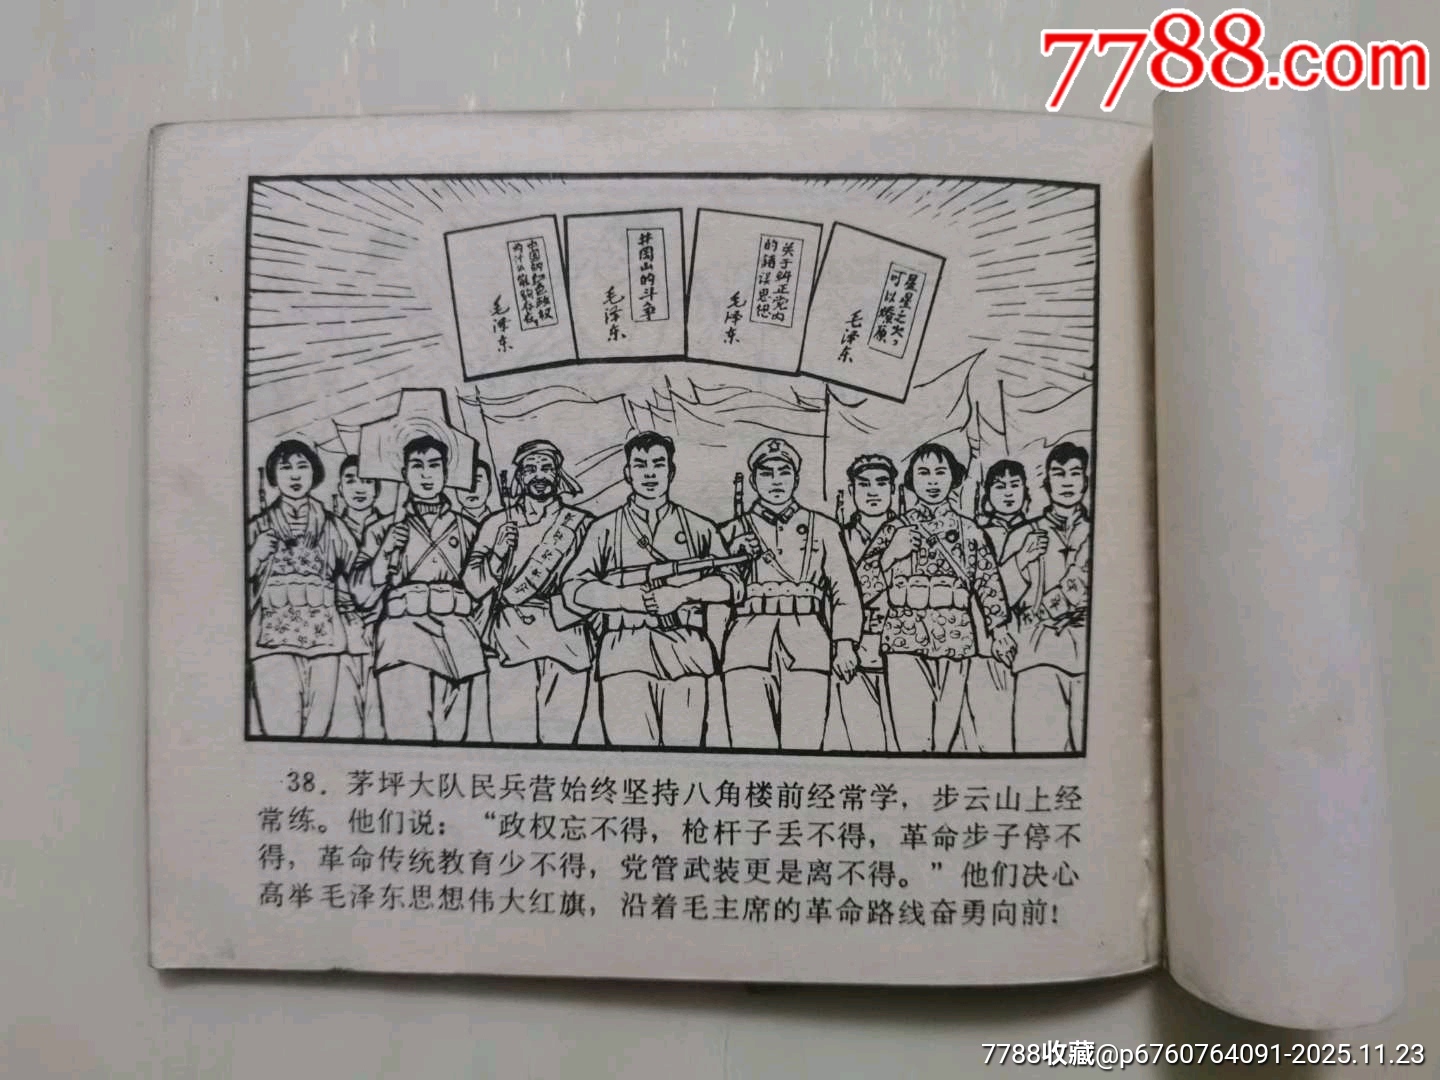 7788.com
中国的红色政权
为什么能够存在？
毛泽东
井冈山的斗争
毛泽东
关于纠正党内
的错误思想
毛泽东
星星之火，
可以燎原
毛泽东
38. 茅坪大队民兵营始终坚持八角楼前经常学，步云山上经
常练。他们说：“政权忘不得，枪杆子丢不得，革命步子停不
得，革命传统教育少不得，党管武装更是离不得。”他们决心
高举毛泽东思想伟大红旗，沿着毛主席的革命路线奋勇向前！
7788收藏@p6760764091-2025.11.23